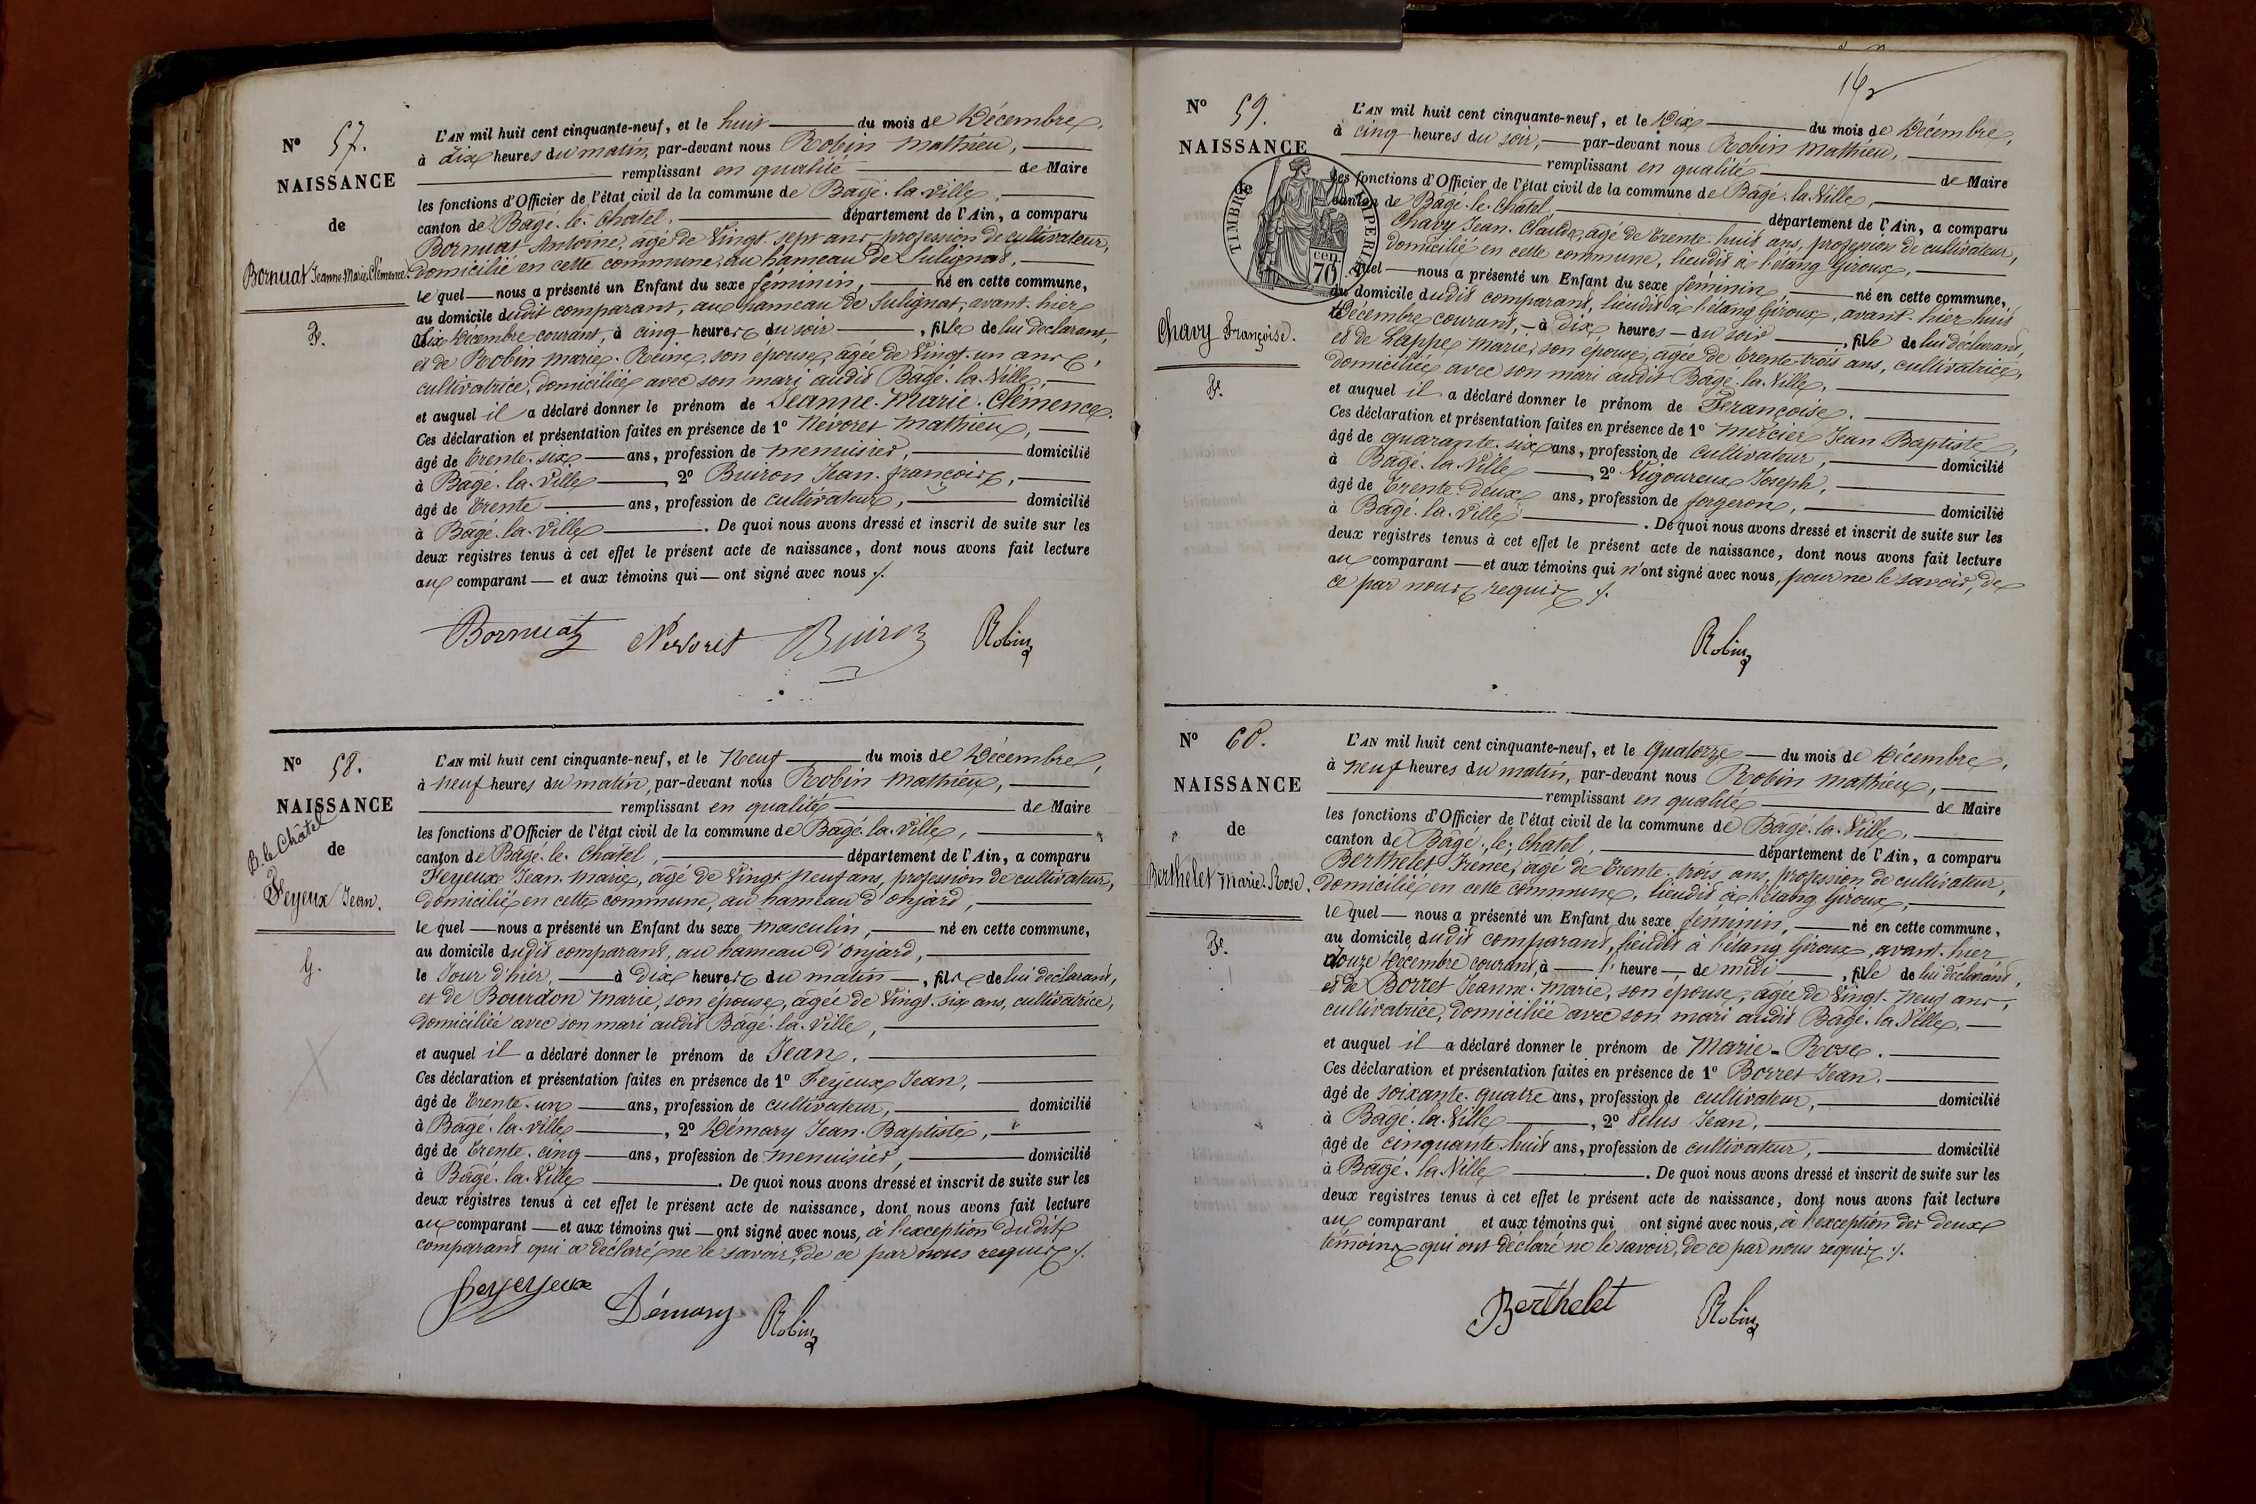 N° 57.
NAISSANCE
de
Bornuat Jeanne-Marie-Clémence.
F.
L'AN mil huit cent cinquante-neuf, et le huit du mois de Décembre,
à dix heures du matin, par-devant nous Robin Mathieu,
remplissant en qualité de Maire
les fonctions d'Officier de l'état civil de la commune de Bâgé-la-Ville,
canton de Bâgé-le-Châtel, département de l'Ain, a comparu
Bornuat Antoine, âgé de Vingt-sept ans, profession de cultivateur,
domicilié en cette commune, au hameau de Sulignat,
lequel nous a présenté un Enfant du sexe féminin, né en cette commune,
au domicile dudit comparant, au hameau de Sulignat, avant-hier
six Décembre courant, à cinq heures du soir, fille de lui déclarant,
et de Robin Marie-Reine, son épouse, âgée de Vingt-un ans,
cultivatrice, domiciliée avec son mari audit Bâgé-la-Ville,
et auquel il a déclaré donner le prénom de Jeanne-Marie-Clémence.
Ces déclaration et présentation faites en présence de 1° Nevoret Mathieu,
âgé de trente-six ans, profession de menuisier, domicilié
à Bâgé-la-Ville, 2° Buiron Jean-françois,
âgé de trente ans, profession de cultivateur, domicilié
à Bâgé-la-Ville. De quoi nous avons dressé et inscrit de suite sur les
deux registres tenus à cet effet le présent acte de naissance, dont nous avons fait lecture
au comparant et aux témoins qui ont signé avec nous ./.
Bornuat Nevoret Buiron Robin
N° 58.
NAISSANCE
B. le Châtel
de
Feyeux Jean.
G.
L'AN mil huit cent cinquante-neuf, et le Neuf du mois de Décembre,
à neuf heures du matin, par-devant nous Robin Mathieu,
remplissant en qualité de Maire
les fonctions d'Officier de l'état civil de la commune de Bâgé-la-Ville,
canton de Bâgé-le-Châtel, département de l'Ain, a comparu
Feyeux Jean-Marie, âgé de Vingt-neuf ans, profession de cultivateur,
domicilié en cette commune, au hameau d'onjard,
lequel nous a présenté un Enfant du sexe masculin, né en cette commune,
au domicile dudit comparant, au hameau d'onjard,
le Jour d'hier, à dix heures du matin, fils de lui déclarant,
et de Bourdon Marie, son épouse, âgée de Vingt-six ans, cultivatrice,
domiciliée avec son mari audit Bâgé-la-Ville,
et auquel il a déclaré donner le prénom de Jean.
Ces déclaration et présentation faites en présence de 1° Feyeux Jean,
âgé de trente-un ans, profession de cultivateur, domicilié
à Bâgé-la-Ville, 2° Démary Jean-Baptiste,
âgé de trente-cinq ans, profession de menuisier, domicilié
à Bâgé-la-Ville. De quoi nous avons dressé et inscrit de suite sur les
deux registres tenus à cet effet le présent acte de naissance, dont nous avons fait lecture
au comparant et aux témoins qui ont signé avec nous, à l'exception dudit
comparant qui a déclaré ne le savoir, de ce par nous requis ./.
feyeyeux Démary Robin
N° 59.
NAISSANCE
de
TIMBRE IMPERIAL
70 cen.
Chavy Françoise.
Fe.
L'AN mil huit cent cinquante-neuf, et le Dix du mois de Décembre,
à cinq heures du soir, par-devant nous Robin Mathieu,
remplissant en qualité de Maire
les fonctions d'Officier de l'état civil de la commune de Bâgé-la-Ville,
canton de Bâgé-le-Châtel, département de l'Ain, a comparu
Chavy Jean-Claude, âgé de trente-huit ans, profession de cultivateur,
domicilié en cette commune, lieudit à l'étang Giroux,
lequel nous a présenté un Enfant du sexe féminin né en cette commune,
au domicile dudit comparant, lieudit à l'étang Giroux, avant-hier huit
Décembre courant, à dix heures du soir, fille de lui déclarant,
et de Lappe Marie, son épouse, âgée de trente-trois ans, cultivatrice,
domiciliée avec son mari audit Bâgé-la-Ville,
et auquel il a déclaré donner le prénom de Françoise.
Ces déclaration et présentation faites en présence de 1° Mercier Jean Baptiste,
âgé de quarante-six ans, profession de cultivateur, domicilié
à Bâgé-la-Ville, 2° Vigoureux Joseph,
âgé de trente-deux ans, profession de forgeron, domicilié
à Bâgé-la-Ville. De quoi nous avons dressé et inscrit de suite sur les
deux registres tenus à cet effet le présent acte de naissance, dont nous avons fait lecture
au comparant et aux témoins qui n'ont signé avec nous, pour ne le savoir, de
ce par nous requis ./.
Robin
N° 60.
NAISSANCE
de
Berthelet Marie-Rose.
Fe.
L'AN mil huit cent cinquante-neuf, et le quatorze du mois de Décembre,
à neuf heures du matin, par-devant nous Robin Mathieu,
remplissant en qualité de Maire
les fonctions d'Officier de l'état civil de la commune de Bâgé-la-Ville,
canton de Bâgé-le-Châtel, département de l'Ain, a comparu
Berthelet Irénée, âgé de trente-trois ans, profession de cultivateur,
domicilié en cette commune, lieudit à l'étang Giroux,
lequel nous a présenté un Enfant du sexe féminin, né en cette commune,
au domicile dudit comparant, lieudit à l'étang Giroux, avant-hier
douze Décembre courant, à l'heure de midi, fille de lui déclarant,
et de Borret Jeanne-Marie, son épouse, âgée de Vingt-neuf ans,
cultivatrice, domiciliée avec son mari audit Bâgé-la-Ville,
et auquel il a déclaré donner le prénom de Marie-Rose.
Ces déclaration et présentation faites en présence de 1° Borret Jean,
âgé de soixante-quatre ans, profession de cultivateur, domicilié
à Bâgé-la-Ville, 2° Pelus Jean,
âgé de cinquante-huit ans, profession de cultivateur, domicilié
à Bâgé-la-Ville. De quoi nous avons dressé et inscrit de suite sur les
deux registres tenus à cet effet le présent acte de naissance, dont nous avons fait lecture
au comparant et aux témoins qui ont signé avec nous, à l'exception des deux
témoins qui ont déclaré ne le savoir, de ce par nous requis ./.
Berthelet Robin